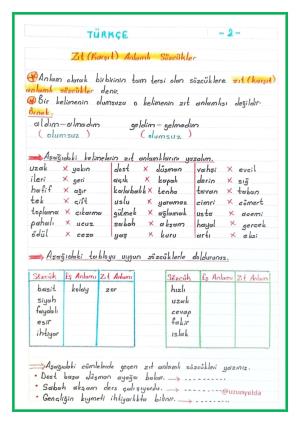 TÜRKÇE
- 2 -
Zıt (Karşıt) Anlamlı Sözcükler
Anlam olarak birbirinin tam tersi olan sözcüklere zıt (karşıt)
anlamlı sözcükler denir.
Bir kelimenin olumsuzu o kelimenin zıt anlamlısı değildir.
Örnek:
aldım-almadım geldim-gelmedim
(olumsuz) (olumsuz)
Aşağıdaki kelimelerin zıt anlamlılarını yazalım.
uzak x yakın dost x düşman vahşi x evcil
ileri x geri açık x kapalı derin x sığ
hafif x ağır kalabalık x tenha tavan x taban
tek x çift uslu x yaramaz cimri x cömert
toplama x çıkarma gülmek x ağlamak usta x acemi
pahalı x ucuz sabah x akşam hayal x gerçek
ödül x ceza yaş x kuru artı x eksi
Aşağıdaki tabloyu uygun sözcüklerle doldurunuz.
Sözcük Eş Anlamı Zıt Anlamı Sözcük Eş Anlamı Zıt Anlamı
basit kolay zor hızlı
siyah uzak
faydalı cevap
esir fakir
ihtiyar ıslak
Aşağıdaki cümlelerde geçen zıt anlamlı sözcükleri yazınız.
• Dost başa düşman ayağa bakar.
• Sabah akşam ders çalışıyordu.
• Gençliğin kıymeti ihtiyarlıkta bilinir.